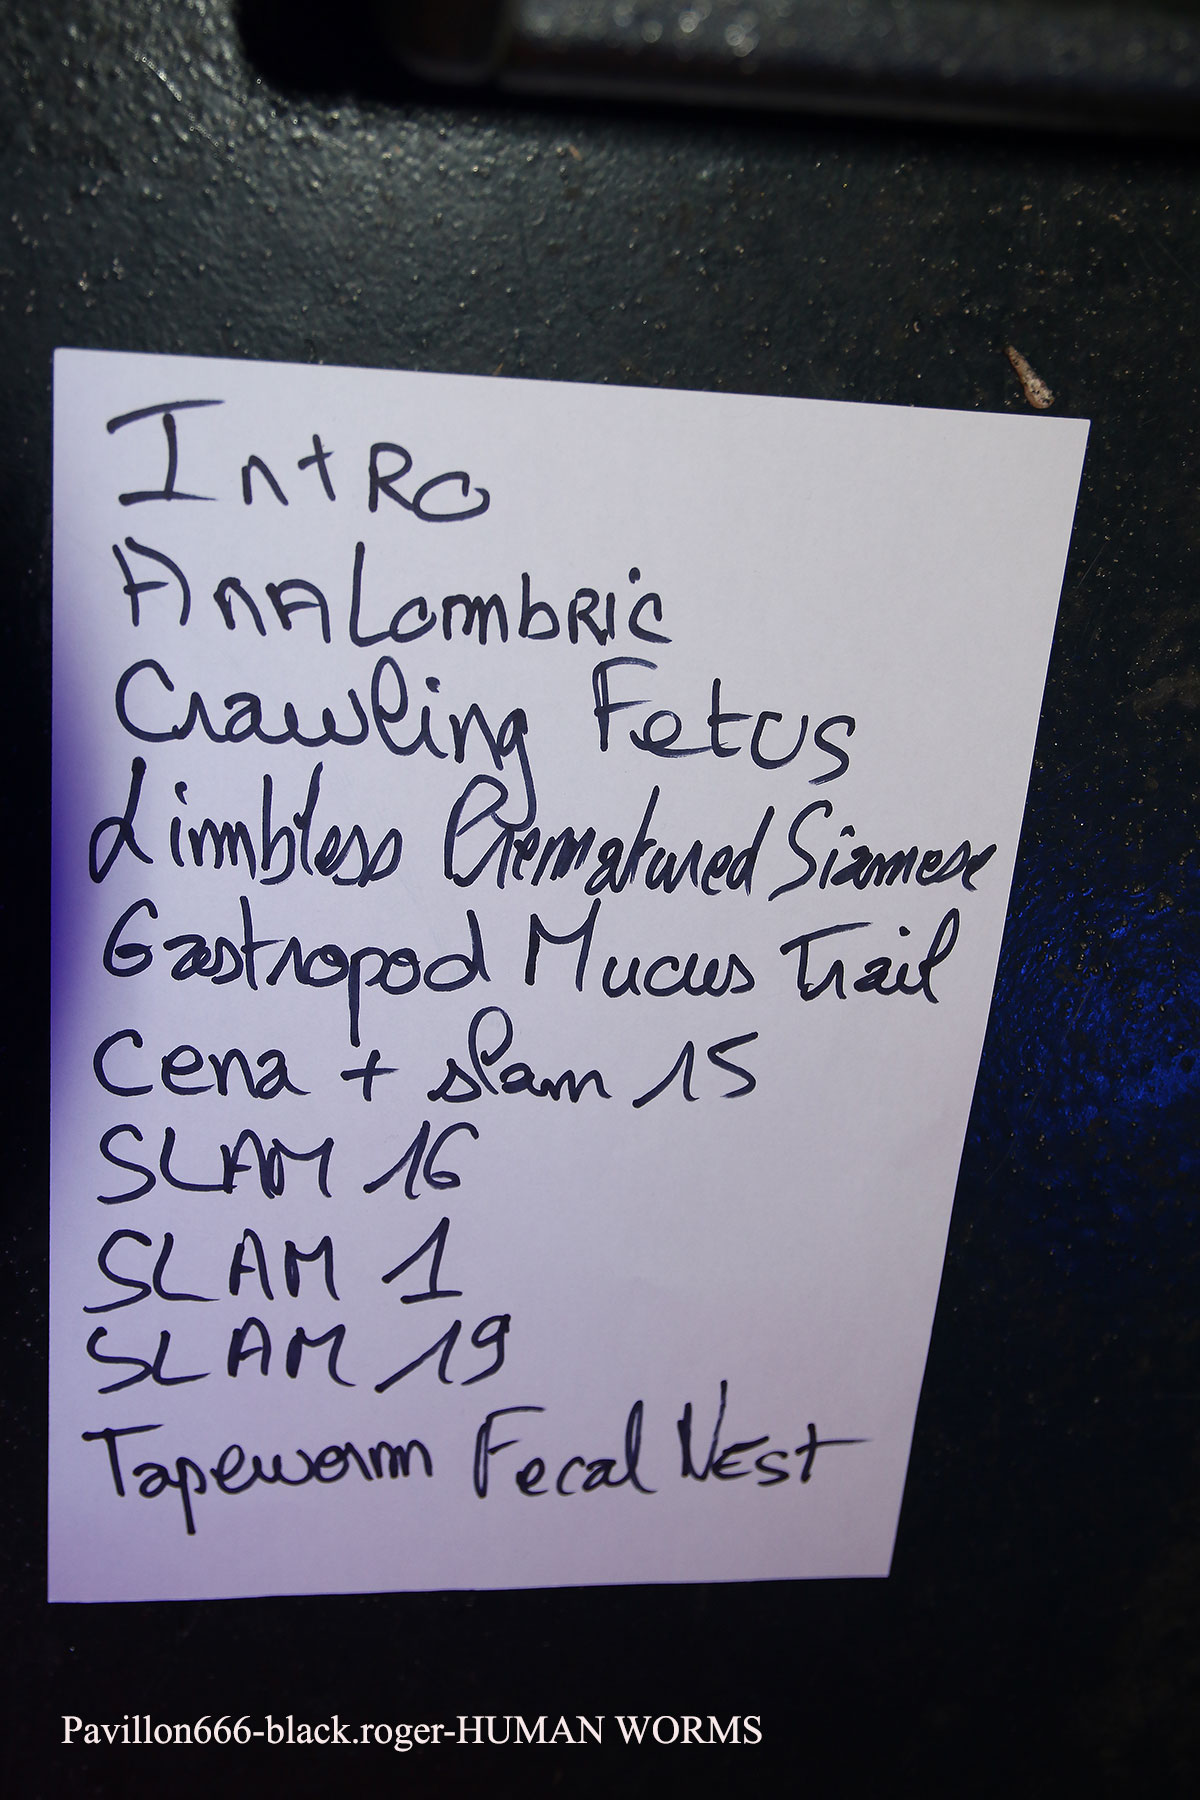 Intro
AnALombRic
Crawling Fetus
Limbless Prematured Siamese
Gastropod Mucus Trail
Cena + slam 15
SLAM 16
SLAM 1
SLAM 19
Tapeworm Fecal NEst
Pavillon666-black.roger-HUMAN WORMS